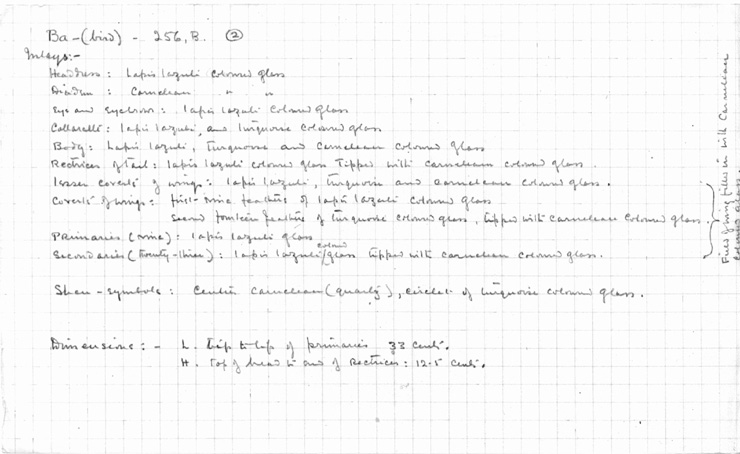 Ba-(bird) - 256, B. (2)
Inlays:-
Headdress: Lapis lazuli coloured glass
Diadem: Carnelian " "
Eye and Eyebrows: lapis lazuli coloured glass
Collarette: lapis lazuli, and turquoise coloured glass
Body: Lapis lazuli, turquoise and carnelian coloured glass
Rectrices of tail: lapis lazuli coloured glass tipped with carnelian coloured glass.
lesser coverts of wings: lapis lazuli, turquoise and carnelian coloured glass.
Coverts of wings: first-nine feathers of lapis lazuli coloured glass
Second fourteen feathers of turquoise coloured glass, tipped with carnelian coloured glass.
Primaries (nine): lapis lazuli glass
Secondaries (twenty-three): lapis lazuli coloured glass tipped with carnelian coloured glass.
Field of wing filled in with Carnelian
coloured glass.
Shen-symbols: Centre carnelian (quartz), circlet of turquoise coloured glass.
Dimensions:- L. tip to tip of primaries 33 cents.
H. top of head to end of Rectrices: 12.5 cents.